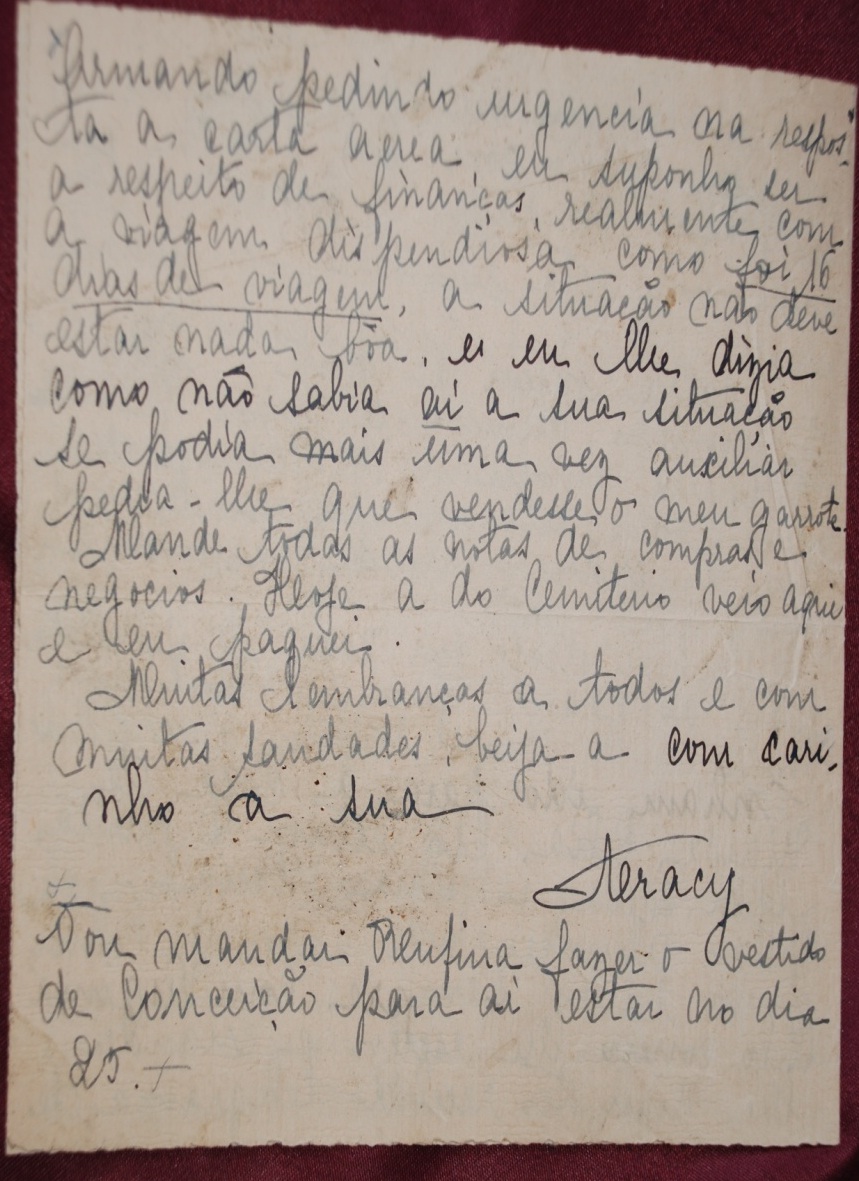 Armando pedindo urgencia na respos-
ta a carta aerea, eu suponho ser
a respeito de finanças, realmente com
a viagem dispendiosa como foi 16
dias de viagem, a situação não deve
estar nada bôa, e eu lhe dizia
como não sabia aí a sua situação
se podia mais uma vez auxiliar
pedia-lhe que vendesse o meu garrote.
Mande todas as notas de compras e
negocios. Hoje a do Cemiterio veio aqui
e eu paguei.
Muitas lembranças a todos e com
muitas saudades, beija-a com cari-
nho a sua
Aeracy
Vou mandar Rufina fazer o vestido
de Conceição para aí estar no dia
25.+